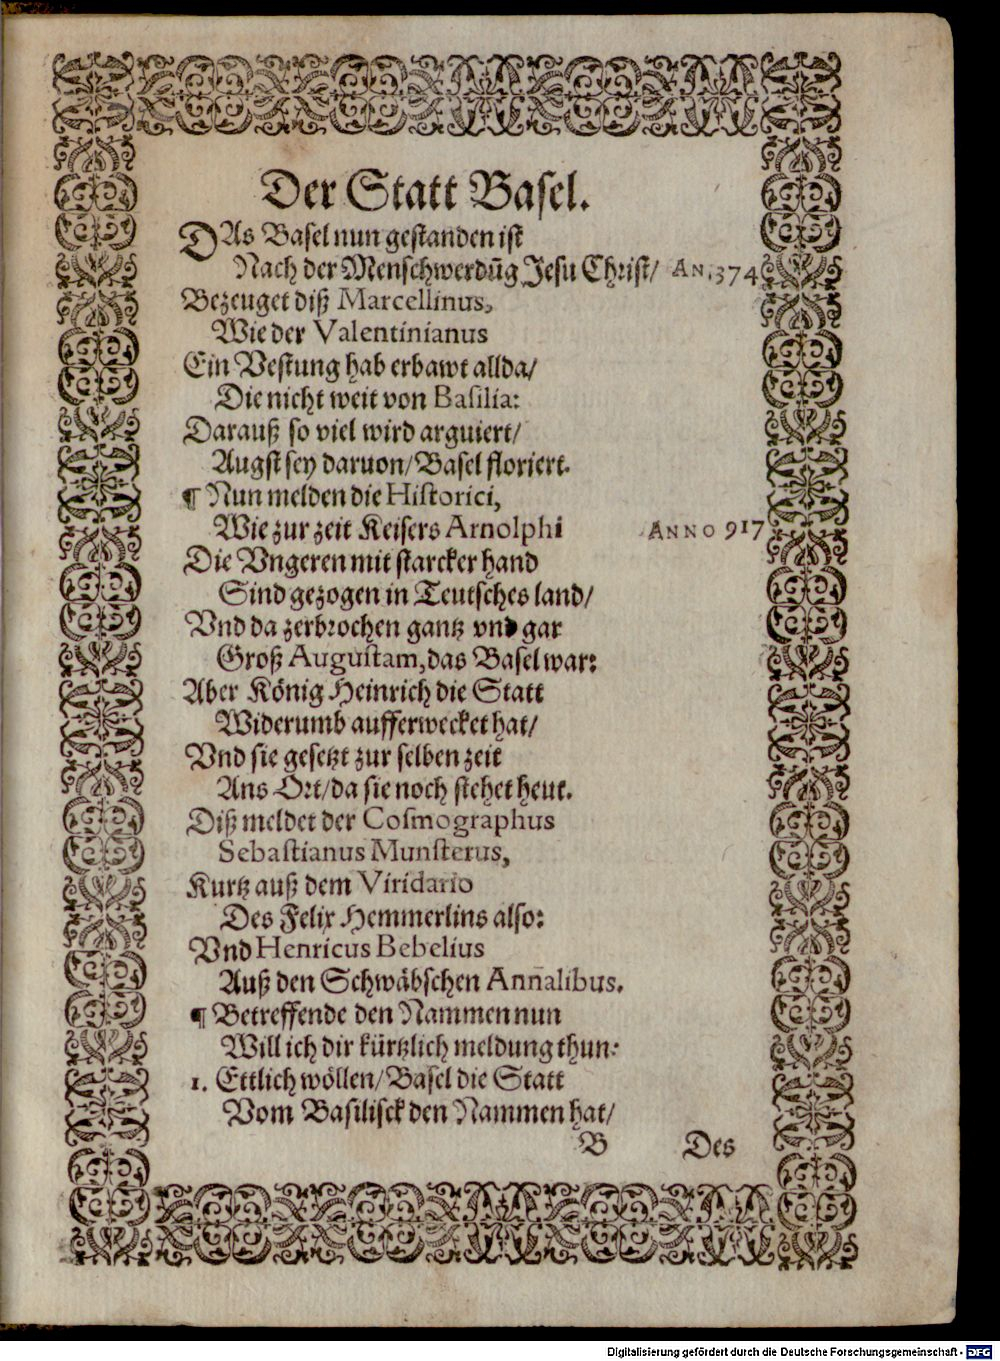 Der Statt Basel.
DAs Basel nun gestanden ist
Nach der Menschwerdūg Jesu Christ/ AN. 374
Bezeuget diß Marcellinus,
Wie der Valentinianus
Ein Vestung hab erbawt allda/
Die nicht weit von Basilia:
Darauß so viel wird arguiert/
Augst sey daruon/ Basel floriert.
¶ Nun melden die Historici,
Wie zur zeit Keisers Arnolphi ANNO 917
Die Vngeren mit starcker hand
Sind gezogen in Teutsches land/
Vnd da zerbrochen gantz vnd gar
Groß Augustam, das Basel war:
Aber König Heinrich die Statt
Widerumb aufferwecket hat/
Vnd sie gesetzt zur selben zeit
Ans Ort/ da sie noch stehet heut.
Diß meldet der Cosmographus
Sebastianus Munsterus,
Kurtz auß dem Viridario
Des Felix Hemmerlins also:
Vnd Henricus Bebelius
Auß den Schwäbschen Anñalibus.
¶ Betreffende den Nammen nun
Will ich dir kürtzlich meldung thun:
1. Ettlich wöllen/ Basel die Statt
Vom Basilisck den Nammen hat/
B Des
Digitalisierung gefördert durch die Deutsche Forschungsgemeinschaft - DFG